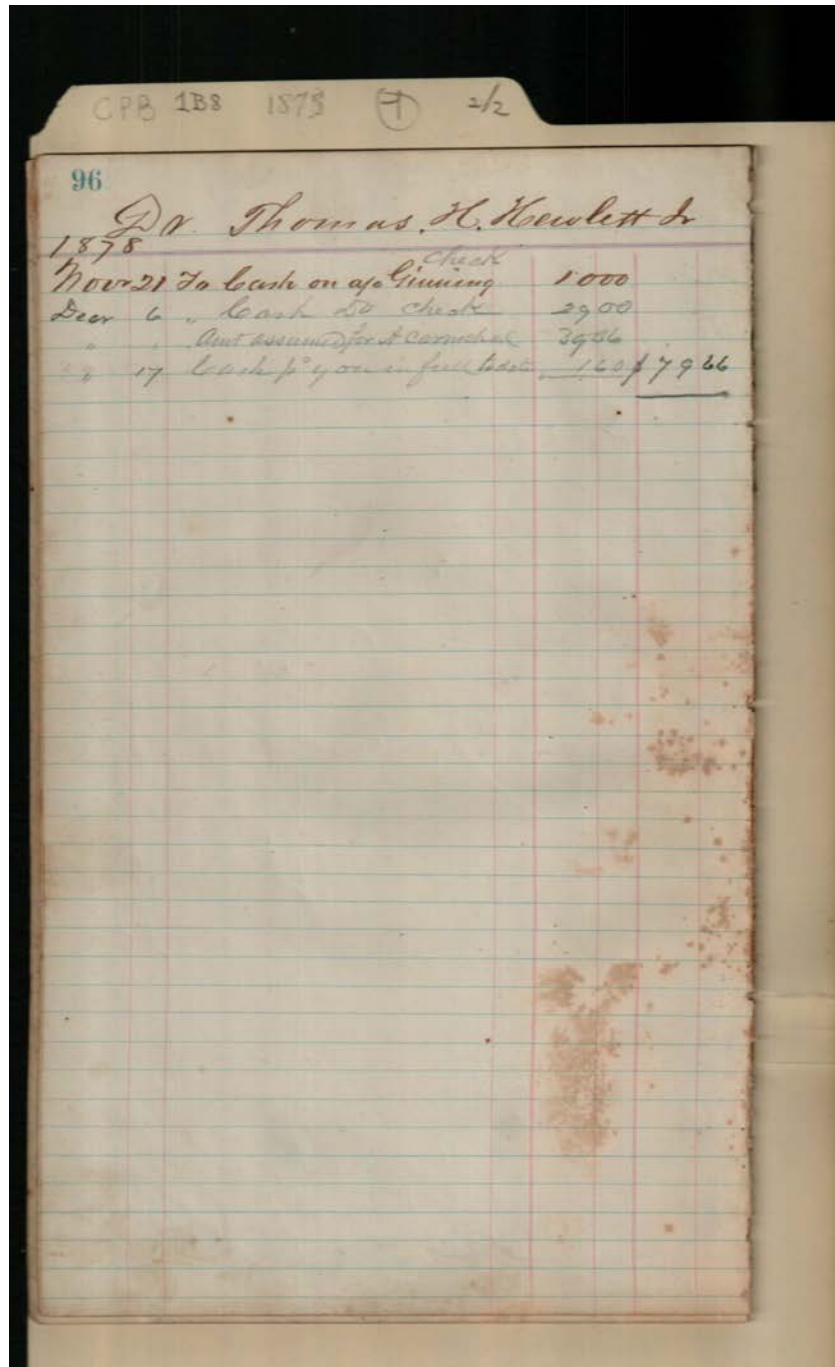 CPB 1B8 1878 1 2/2
96
Dr. Thomas. H. Hewlett Jr
1878
check
Novr 21 To Cash on a/c Ginning 10 00
Decr 6 " Cash Do check 29 00
" " Amt assumed for A Carmichel 39 06
" 17 Cash pd you in full to date 1 60 $ 79 66